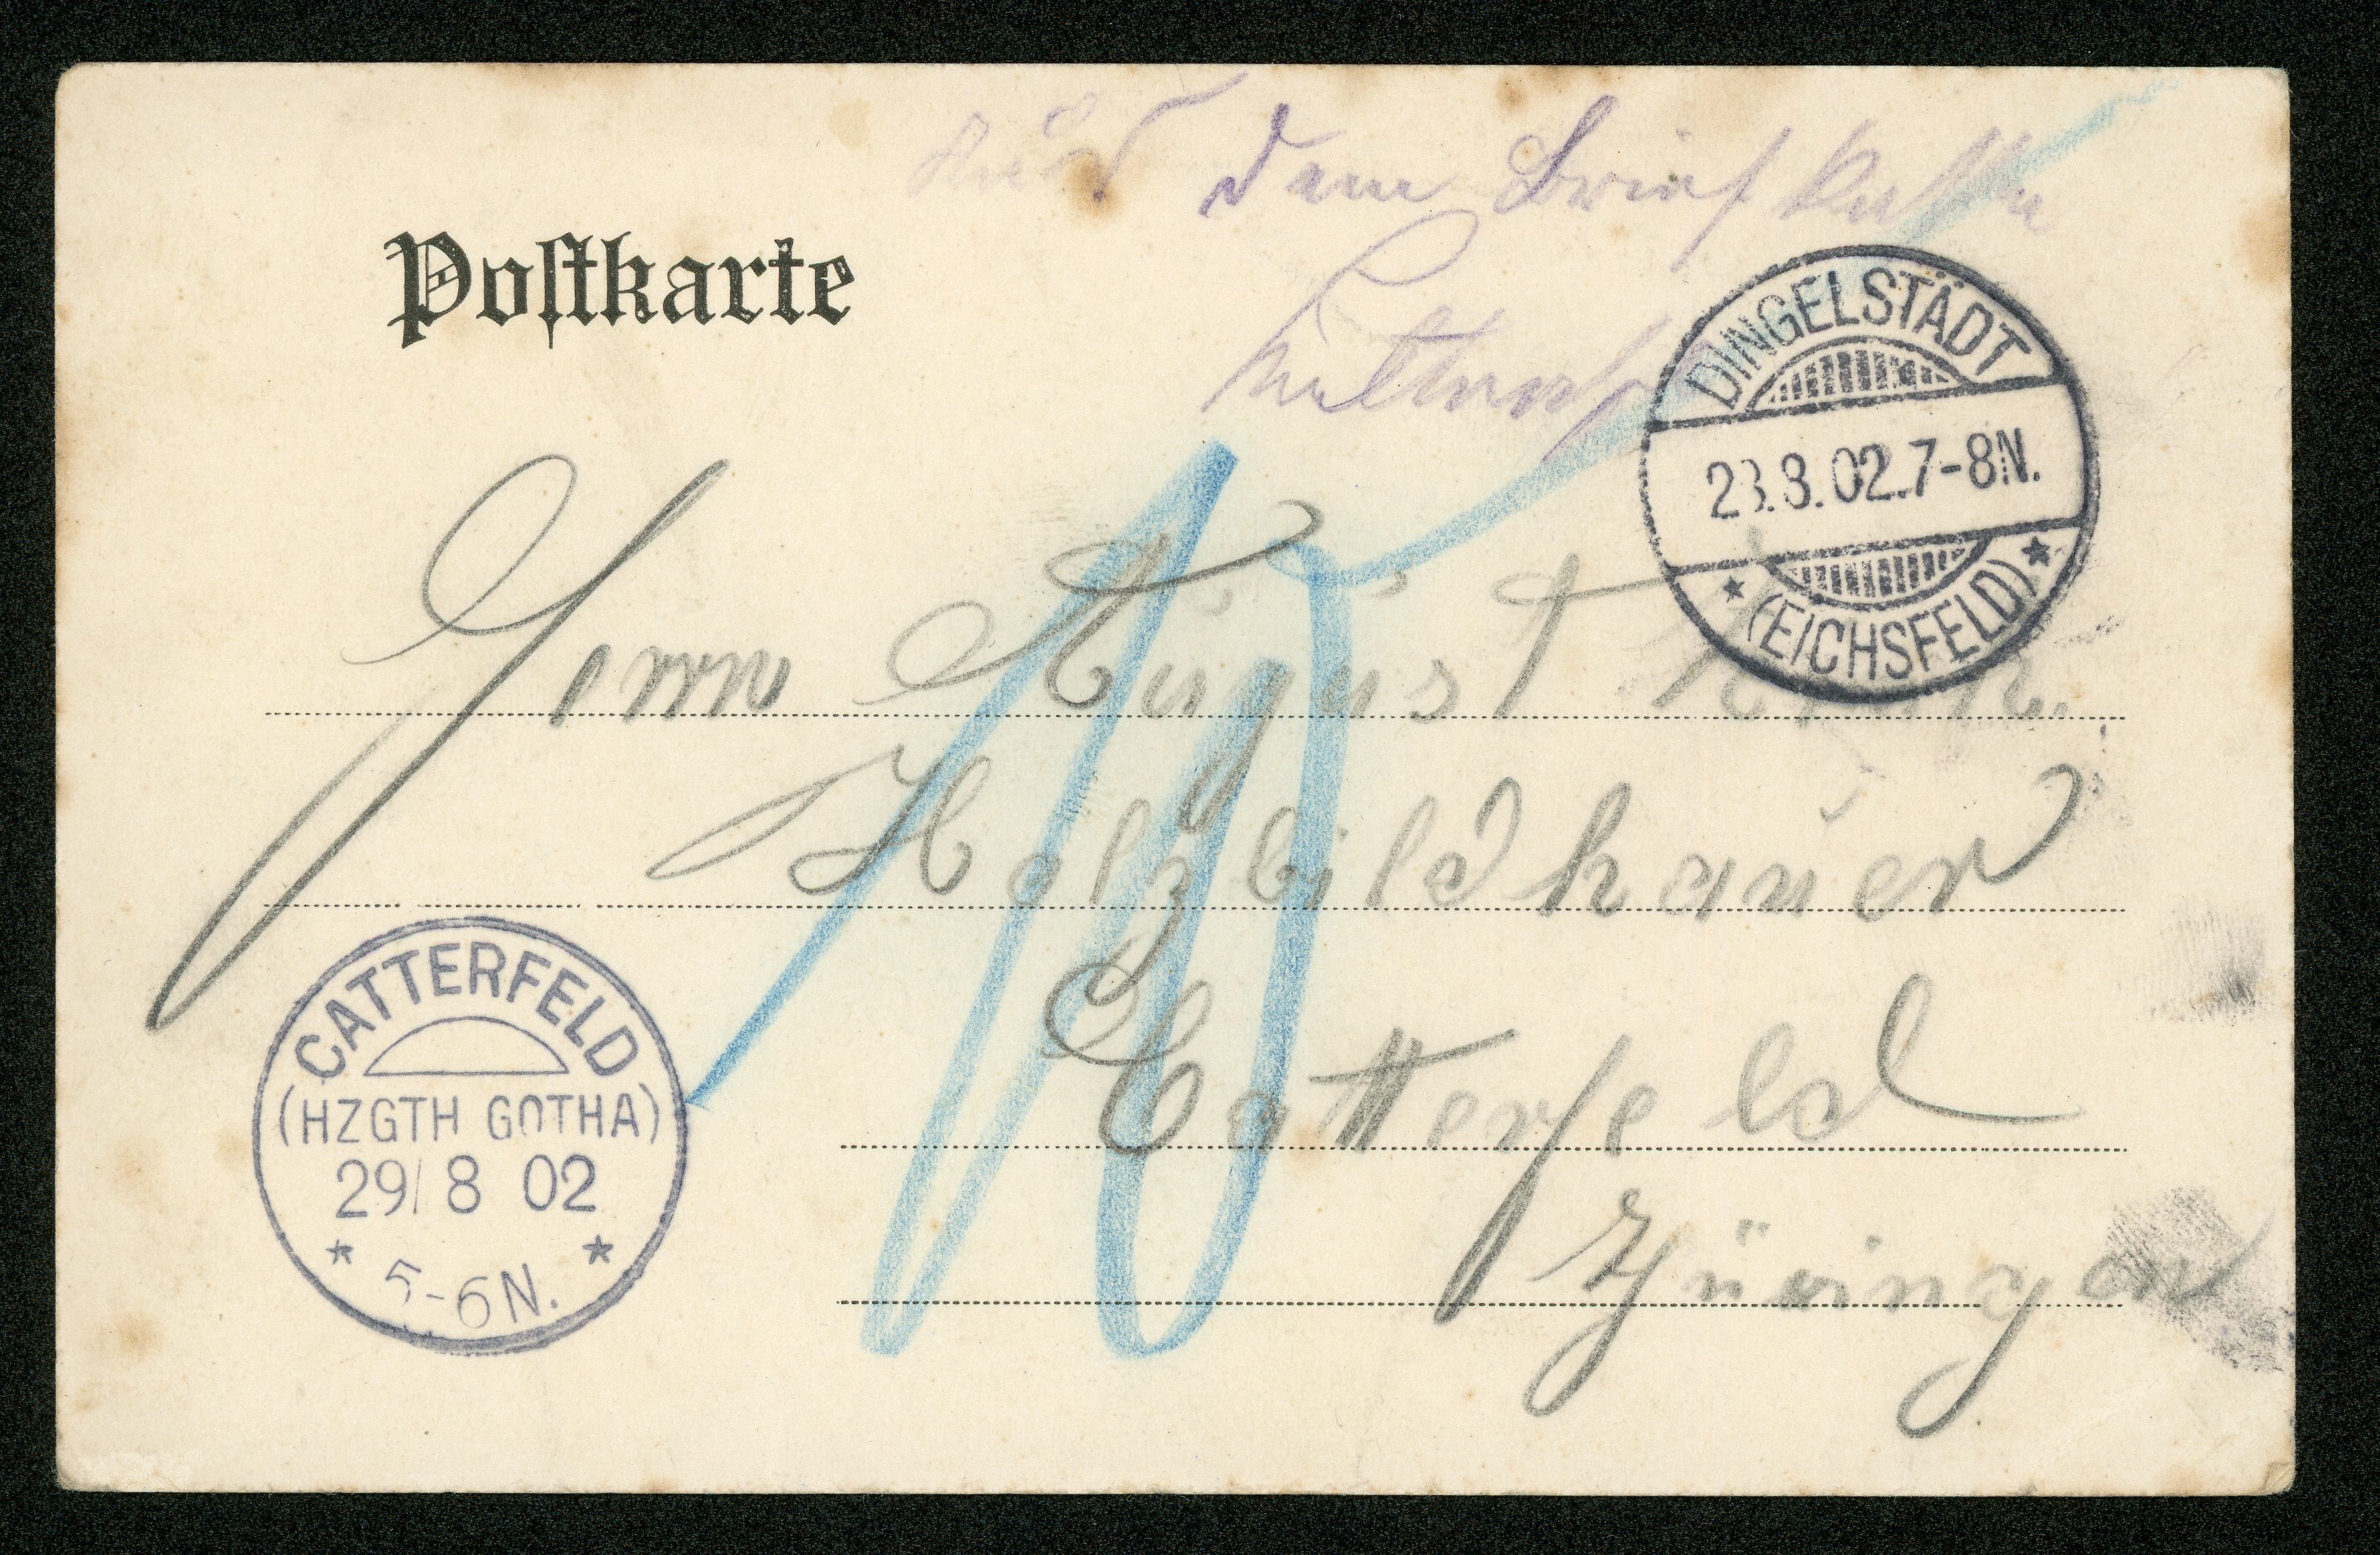 aus dem Briefkasten
Postkarte
DINGELSTÄDT
28.8.02.7-8N.
* (EICHSFELD) *
Herrn August
Holzbildhauer
Catterfeld
Thüringen
10
CATTERFELD
(HZGTH GOTHA)
29/8 02
* 5-6N. *